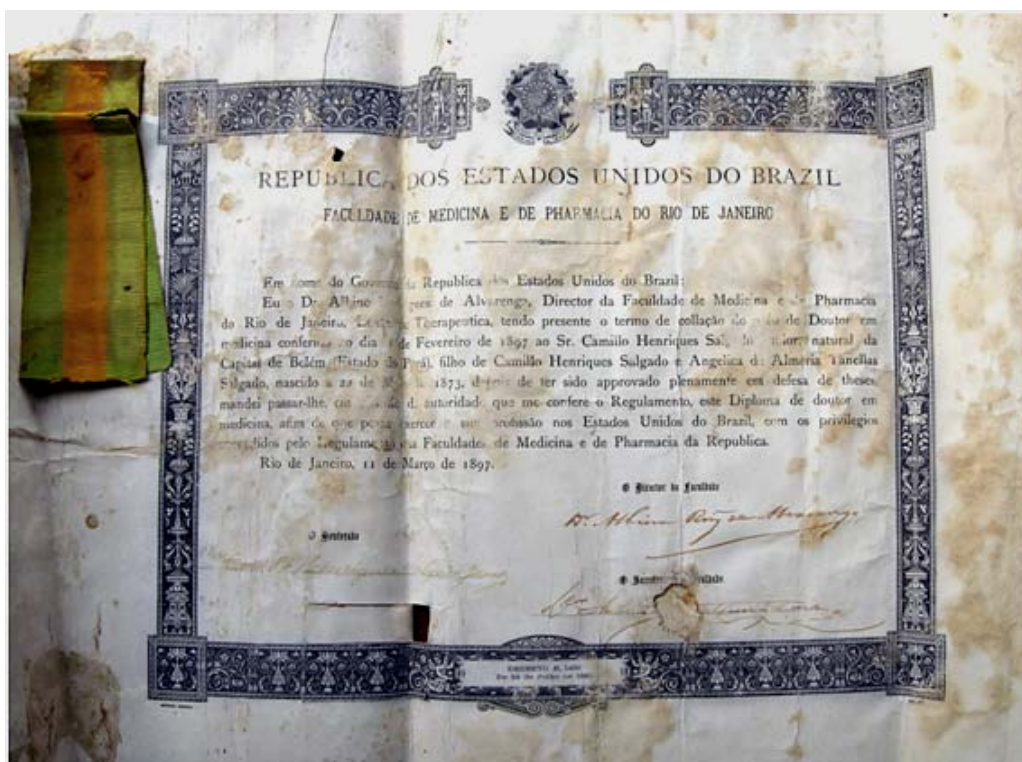 REPUBLICA DOS ESTADOS UNIDOS DO BRAZIL
FACULDADE DE MEDICINA E DE PHARMACIA DO RIO DE JANEIRO
Em nome do Governo da Republica dos Estados Unidos do Brazil:
Eu o Dr. Albino de Alvarenga, Director da Faculdade de Medicina e de Pharmacia
do Rio de Janeiro, Therapeutica, tendo presente o termo de collação do de Doutor em
medicina conferido no dia de Fevereiro de 1897 ao Sr. Camillo Henriques natural da
Capital de Belém (Estado do Pará), filho de Camillo Henriques Salgado e Angelica de Almeria Tanellas
Salgado, nascido a 22 de 1873, depois de ter sido approvado plenamente em defesa de theses,
mandei passar-lhe, autoridade que me confere o Regulamento, este Diploma de doutor em
medicina, afim de que possa exercer a sua profissão nos Estados Unidos do Brazil, com os privilegios
concedidos pelo Regulamento da Faculdade de Medicina e de Pharmacia da Republica.
Rio de Janeiro, 11 de Março de 1897.
O Director da Faculdade
Dr. Albino Roiz de Alvarenga
O
O Faculdade
Henriques
DECRETO N.
De de de